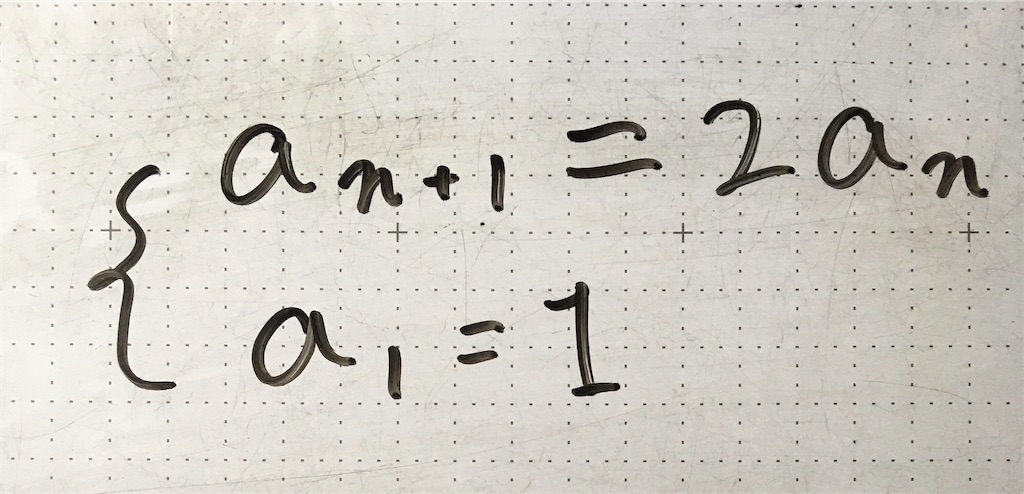 aₙ₊₁ = 2aₙ
a₁ = 1